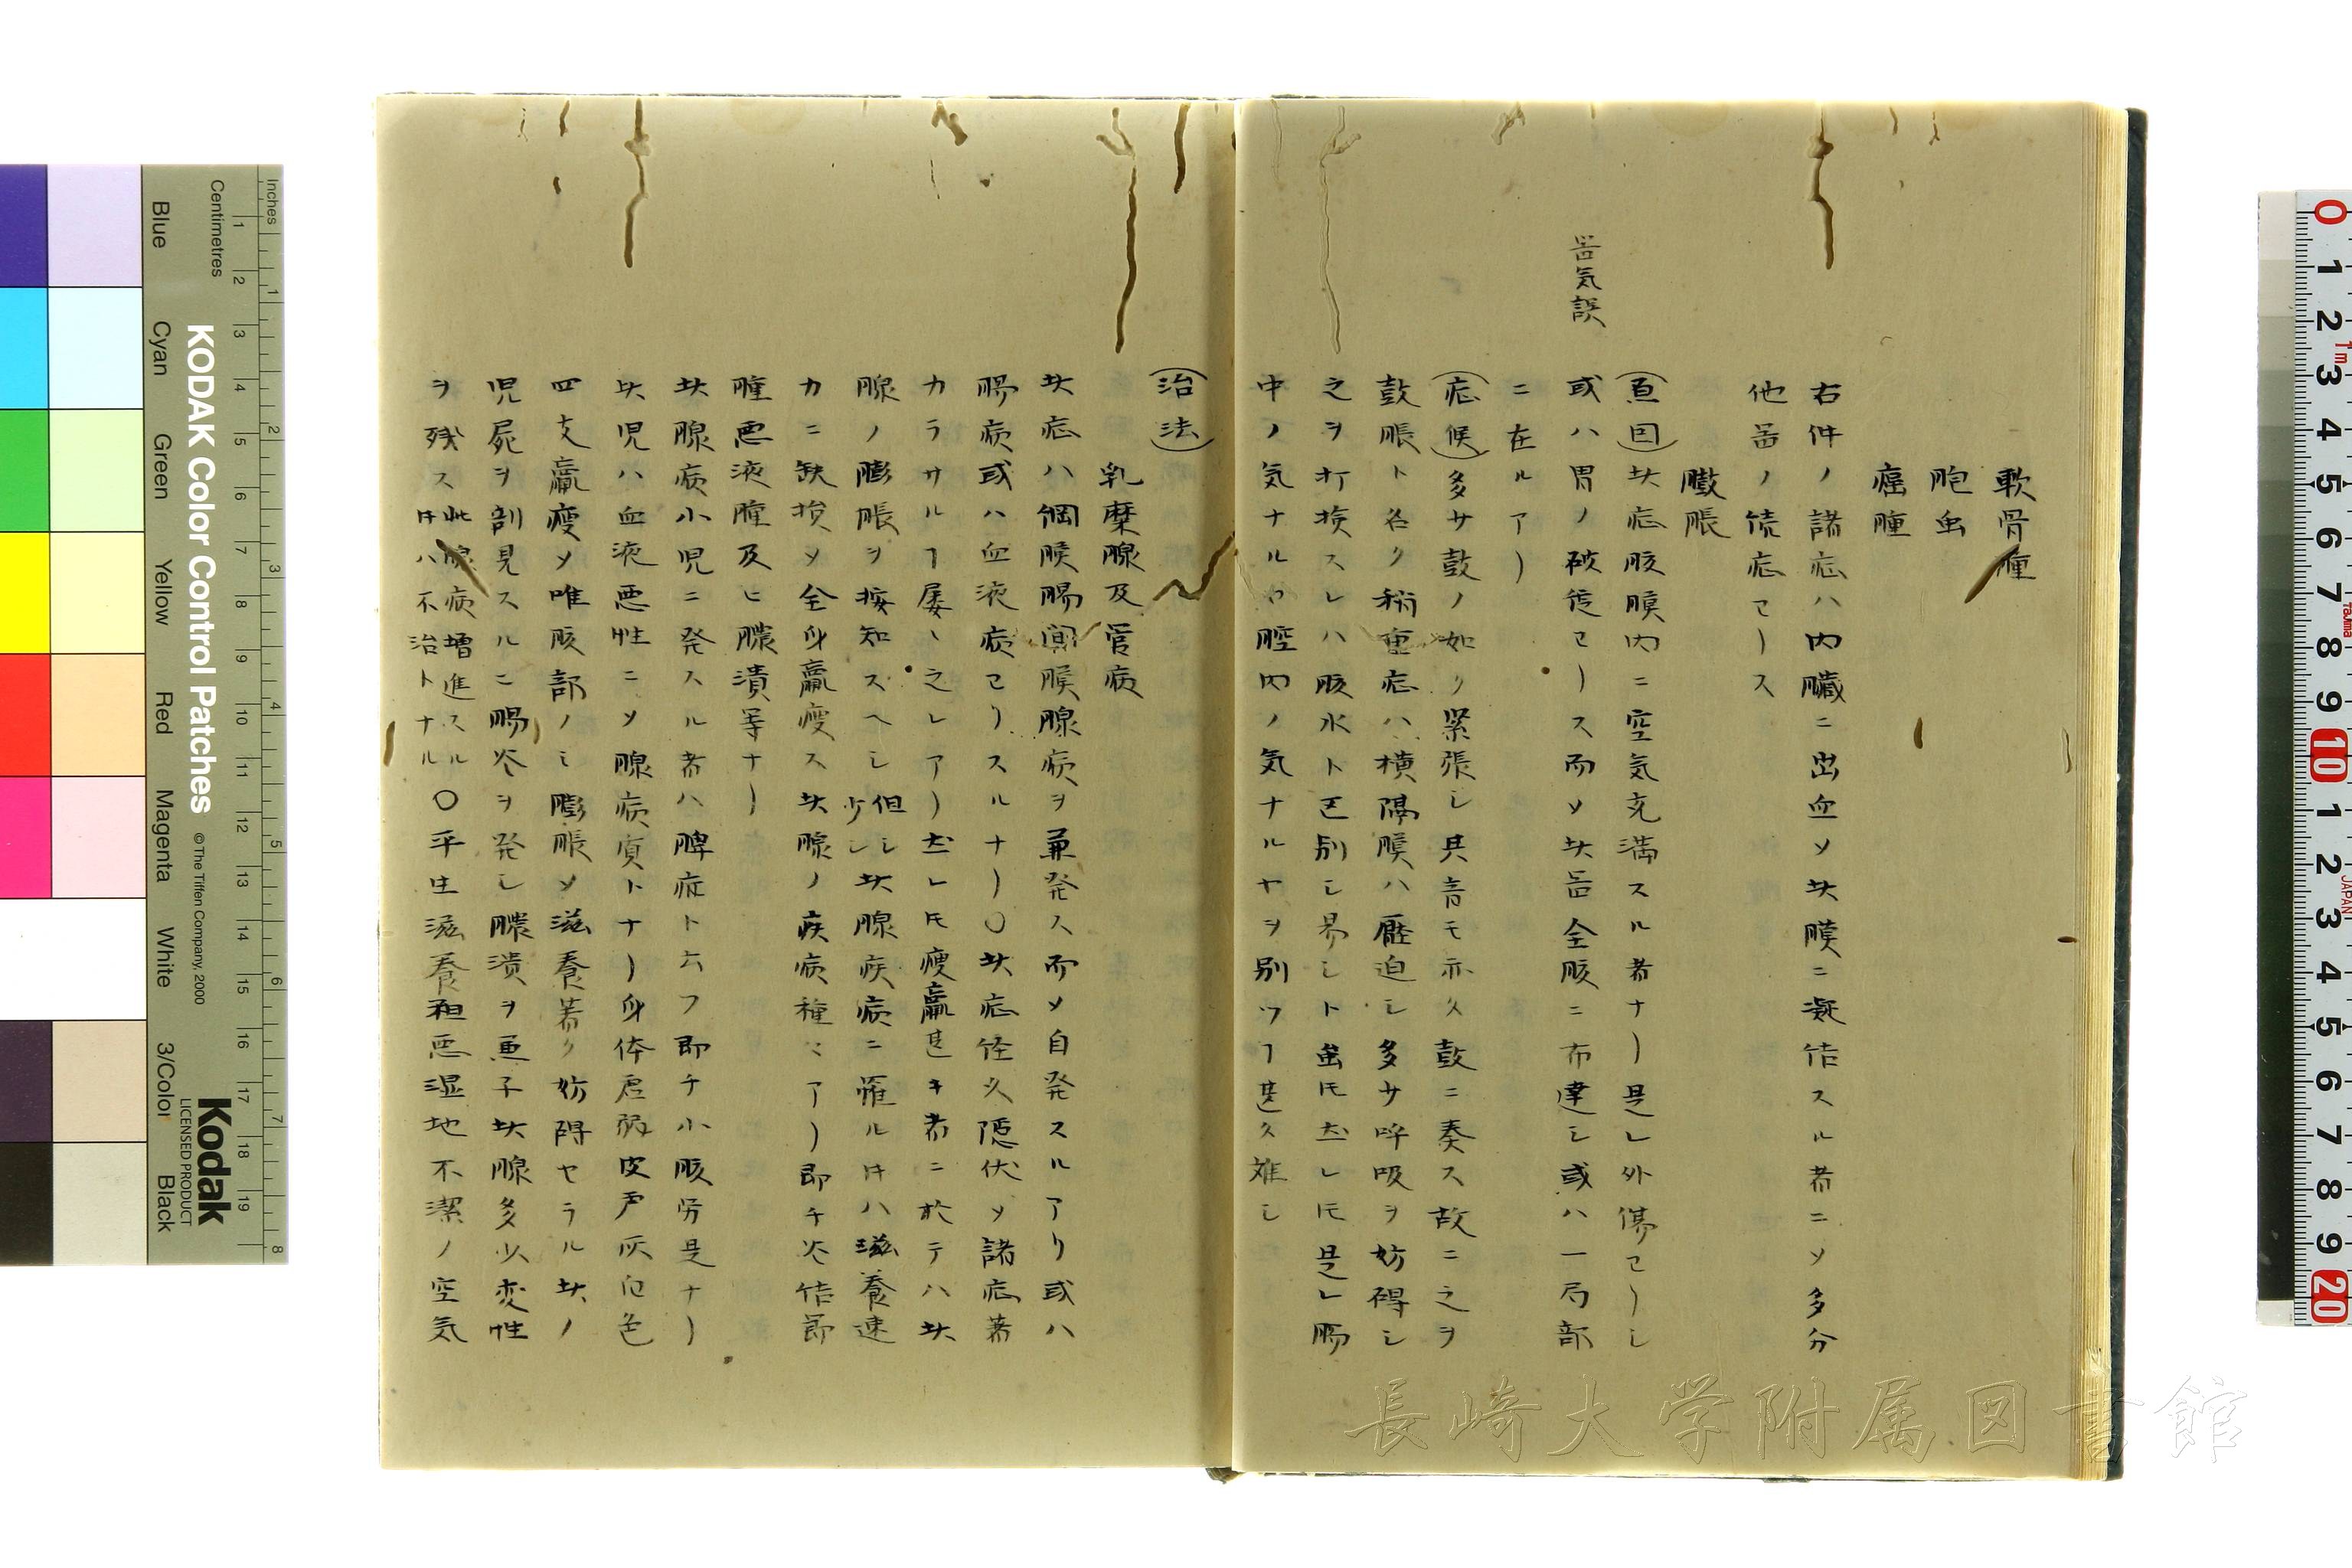 軟骨腫
胞虫
癌腫
右件ノ諸症ハ内臓ニ出血ソ此膜ニ凝結スル者ニソ多分
他器ノ続症ヨリス
臌脹
(原因)此症腹膜内ニ空気充満スル者ナリ是レ外傷ヨリシ
或ハ胃ノ破徳ヨリス而ソ此器全腹ニ布達シ或ハ一局部
ニ在ルアリ
器気誤
(症候)多サ鼓ノ如ク緊張シ其音モ亦久鼓ニ奏ス故ニ之ヲ
鼓脹ト名ク稍重症ハ横隔膜ハ圧迫シ多サ呼吸ヲ妨碍シ
之ヲ打撿スレハ腹水ト区別シ易シト雖𪜈然レ𪜈是レ腸
中ノ気ナルヤ腔内ノ気ナルヤヲ別ツヿ甚タ難シ
(治法)
乳糜腺及管病
此症ハ網膜腸間膜腺病ヲ兼発ス而ソ自発スルアリ或ハ
腸病或ハ血液病ヨリスルナリ〇此症経久隠伏ソ諸症著
カラサルヿ屡、之レアリ然レ𪜈痩羸甚キ者ニ於テハ此
腺ノ膨脹ヲ按知スヘシ但シ此腺疾病ニ罹ル𪜈ハ滋養速
少シ
カニ缺損ソ全身羸痩ス此腺ノ疾病種々アリ即チ炎結節
腫悪液腫及ヒ膿潰等ナリ
此腺病小児ニ発スル者ハ脾症ト云フ即チ小腹労是ナリ
此児ハ血液悪性ニソ腺病質トナリ身体虚弱皮膚灰白色
四支羸痩ソ唯腹部ノミ膨脹ソ滋養著ク妨碍セラル此ノ
児屍ヲ剖見スルニ腸炎ヲ発シ膿潰ヲ兼子此腺多少変性
ヲ残ス此腺病増進スル
𪜈ハ不治トナル〇平生滋養粗悪湿地不潔ノ空気
KODAK Color Control Patches
©The Tiffen Company, 2000
Kodak
LICENSED PRODUCT
Inches
Centimetres
Blue
Cyan
Green
Yellow
Red
Magenta
White
3/Color
Black
JAPAN
長崎大学附属図書館